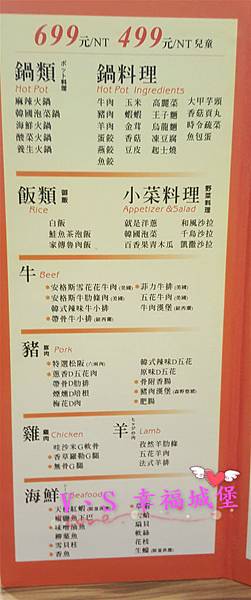 699元/NT 499元/NT兒童
鍋類 ポット料理
Hot Pot
麻辣火鍋
韓國泡菜鍋
海鮮火鍋
酸菜火鍋
養生火鍋
鍋料理
Hot Pot Ingredients
牛肉 玉米 高麗菜 大甲芋頭
豬肉 蝦蝦 王子麵 香菇貢丸
羊肉 金茸 烏龍麵 時令蔬菜
蛋餃 香菇 凍豆腐 魚包蛋
燕餃 豆皮 起士燒
魚餃
飯類 御飯
Rice
白飯
鮭魚茶泡飯
家傳魯肉飯
小菜料理 野菜料理
Appetizer & Salad
就是洋蔥 和風沙拉
韓國泡菜 千島沙拉
百香果青木瓜 凱撒沙拉
牛 Beef
安格斯雪花花牛肉(美國)
安格斯牛肋條肉(美國)
韓式辣味牛小排
帶骨牛小排(紐西蘭)
菲力牛排(美國)
五花牛肉(美國)
牛肉漢堡(紐西蘭)
豬 豚肉 Pork
特選松阪(六兩肉)
蔥香D五花肉
帶骨D肋排
煙燻D培根
梅花D肉
韓式辣味D五花
原味D五花
骨附香腸
豬肉漢堡
肥腸
雞 雞肉 Chicken
哇沙米G軟骨
香草羅勒G腿
無骨G腿
羊 Lamb
孜然羊肋條
五花羊肉
法式羊排
海鮮 Seafood
味噌油魚
柳葉魚
雪貝柱
香魚
扇貝
軟絲
花枝
生蠔
V.S 幸福城堡
Love